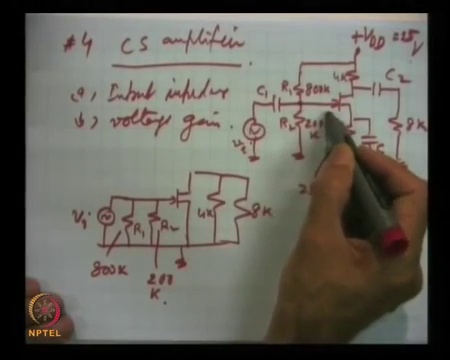 #4 CS amplifier
a, Input impedance
b, voltage gain.
+VDD = 25V
4K
C2
C1
R1
800K
R2
200
K
8K
Vi
Vi
R1
R2
4K
8K
800K
200
K.
NPTEL